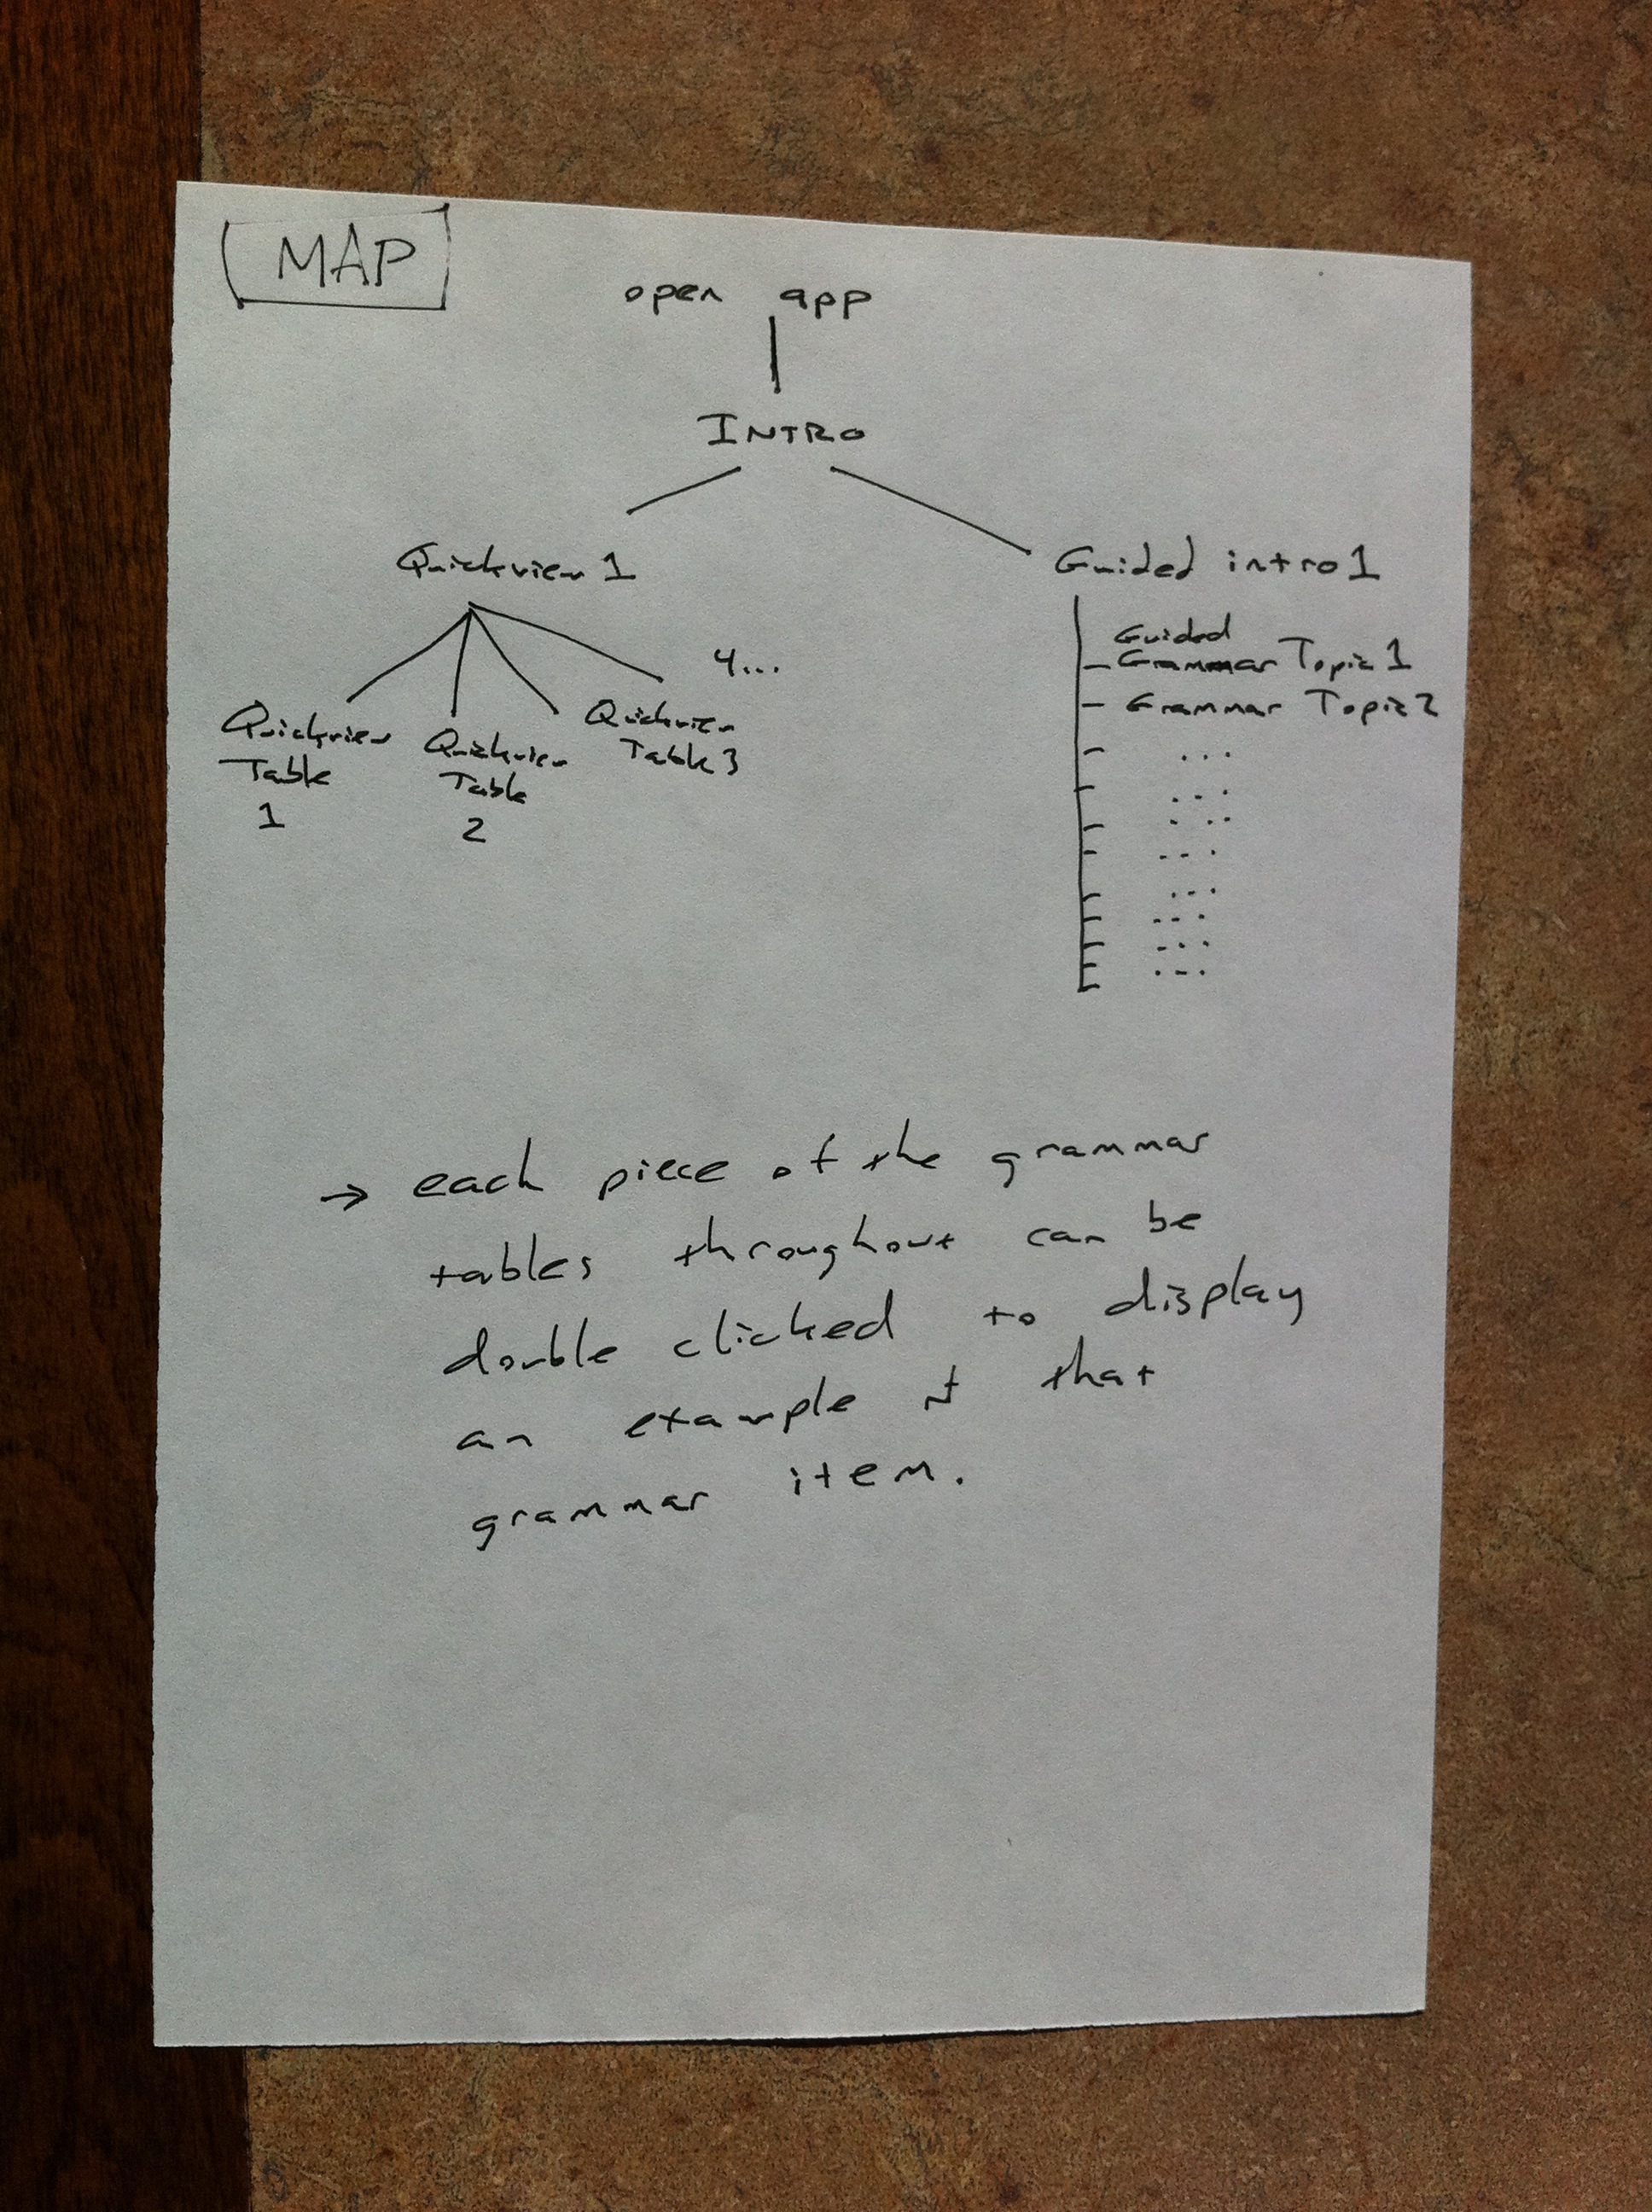 MAP
open app
INTRO
Quickview 1
Guided intro 1
Quickview
Table
1
Quickview
Table
2
Quickview
Table 3
4...
Guided
Grammar Topic 1
Grammar Topic 2
...
...
...
...
...
...
...
...
→ each piece of the grammar
tables throughout can be
double clicked to display
an example of that
grammar item.